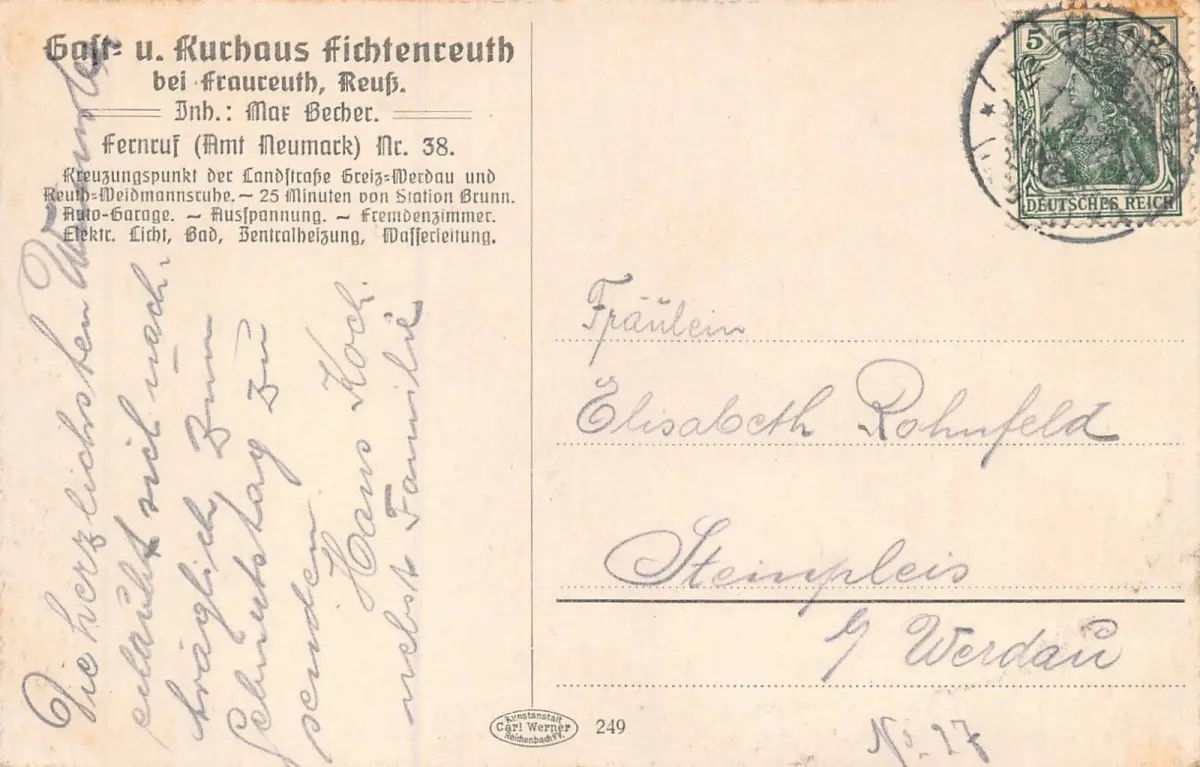 Gast- u. Kurhaus Fichtenreuth
bei Fraureuth, Reuß.
Inh.: Max Becher.
Fernruf (Amt Neumark) Nr. 38.
Kreuzungspunkt der Landstraße Greiz-Werdau und
Reuth-Weidmannsruhe. — 25 Minuten von Station Brunn.
Auto-Garage. — Ausspannung. — Fremdenzimmer.
Elektr. Licht, Bad, Zentralheizung, Wasserleitung.
Die herzlichsten Wünsche
erlaubt sich nach-
träglich zum
Geburtstag zu
senden
Hans Koch
nebst Familie
5
DEUTSCHES REICH
Fräulein
Elisabeth Rohnfeld
Steinpleis
b/ Werdau
No. 27
Kunstanstalt
Carl Werner
Reichenbach i/V.
249